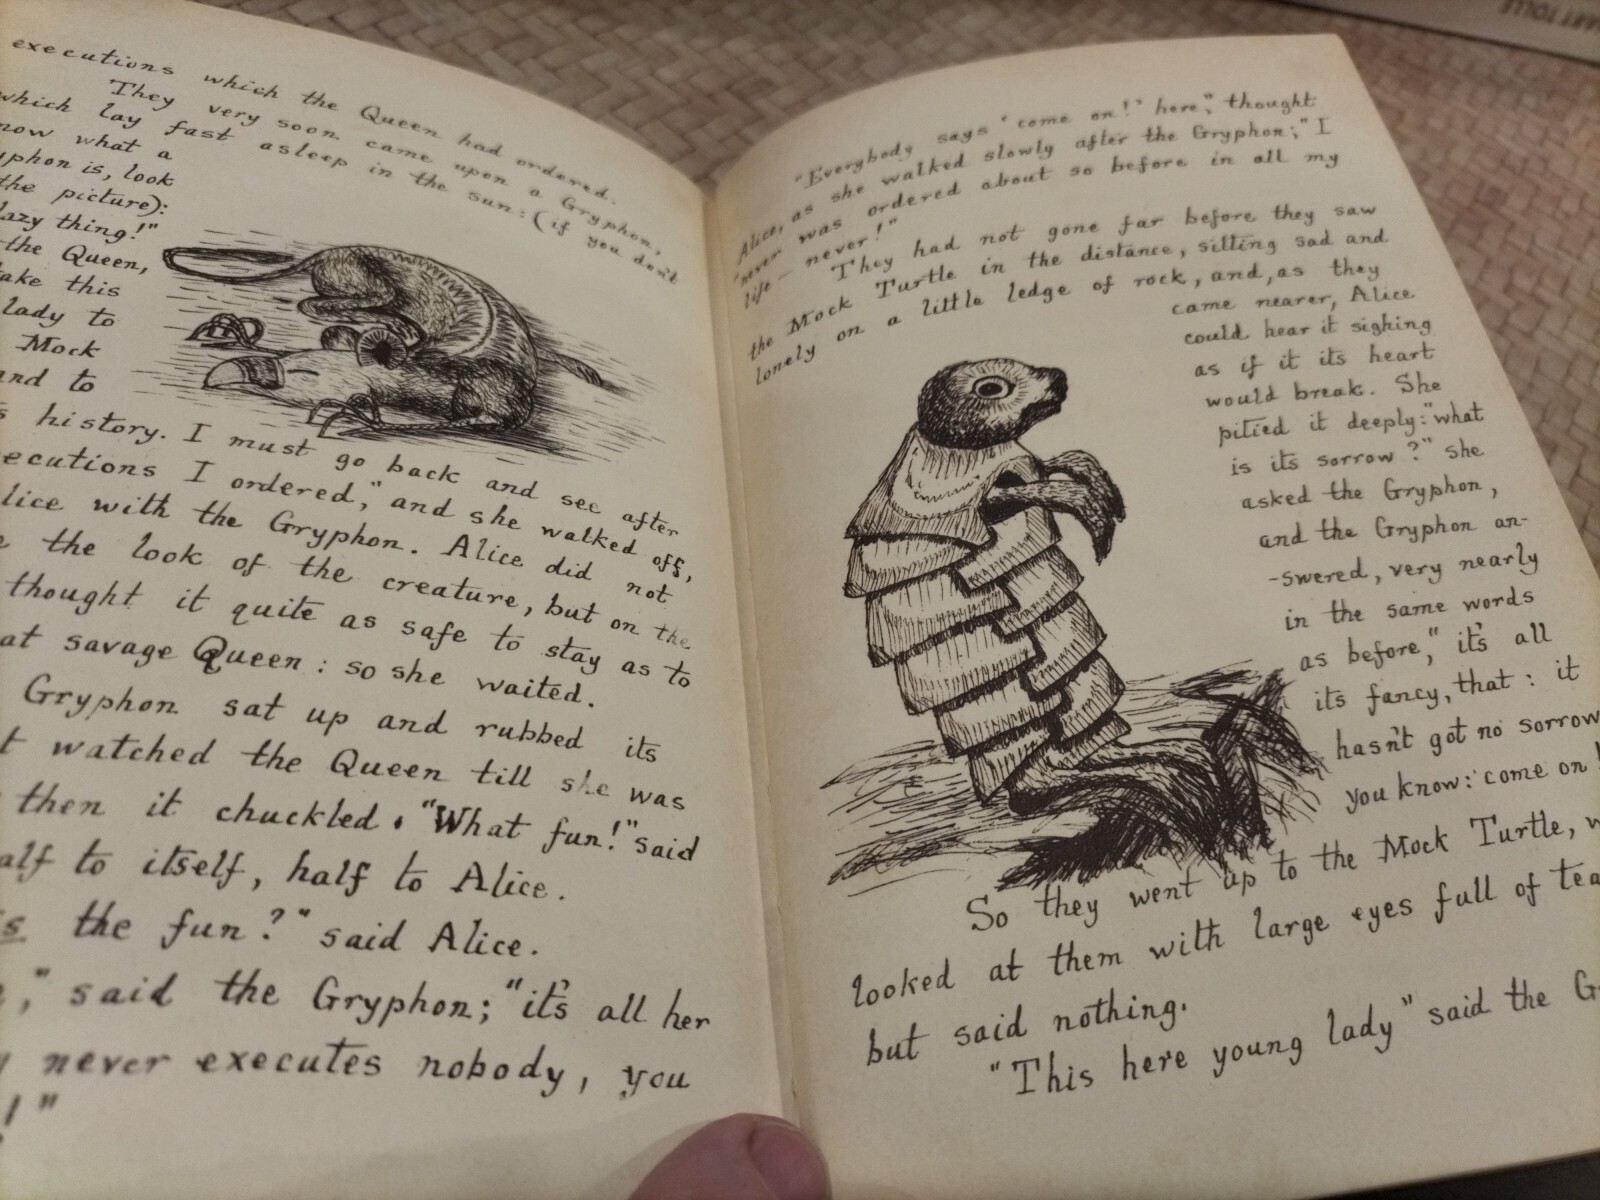 executions which the Queen had ordered.
They very soon came upon a Gryphon,
which lay fast asleep in the sun: (if you don't
now what a
yphon is, look
the picture):
lazy thing!"
the Queen,
ake this
lady to
Mock
and to
s history. I must go back and see after
ecutions I ordered," and she walked off,
lice with the Gryphon. Alice did not
e the look of the creature, but on the
thought it quite as safe to stay as to
at savage Queen: so she waited.
Gryphon sat up and rubbed its
t watched the Queen till she was
then it chuckled. "What fun!" said
alf to itself, half to Alice.
s the fun?" said Alice.
," said the Gryphon; "it's all her
y never executes nobody, you
!"
"Everybody says 'come on!' here," thought
Alice, as she walked slowly after the Gryphon; "I
never was ordered about so before in all my
life — never!"
They had not gone far before they saw
the Mock Turtle in the distance, sitting sad and
lonely on a little ledge of rock, and, as they
came nearer, Alice
could hear it sighing
as if it its heart
would break. She
pitied it deeply: "what
is its sorrow?" she
asked the Gryphon,
and the Gryphon an-
-swered, very nearly
in the same words
as before, "it's all
its fancy, that: it
hasn't got no sorrow
you know: come on!
So they went up to the Mock Turtle, w
looked at them with large eyes full of tea
but said nothing.
"This here young lady" said the G
ART TOLLE